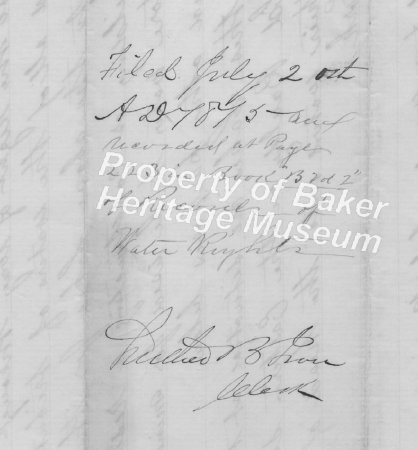 Filed July 20th
AD 1875 and
recorded at Page
223 in Book "B
of Records of
Water Rights
Property of Baker
Heritage Museum
Clerk